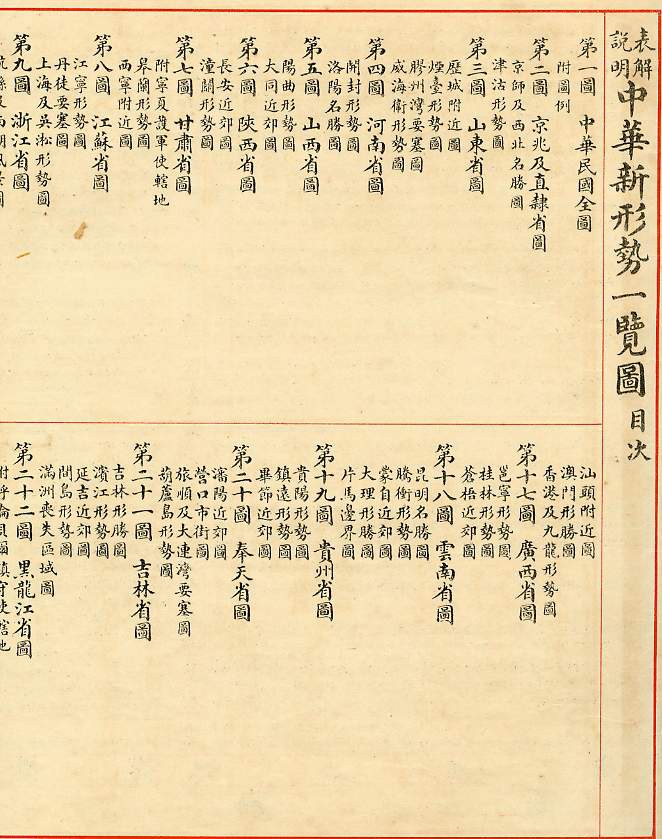 表解說明中華新形勢一覽圖 目次
第一圖 中華民國全圖
附圖例
第二圖 京兆及直隸省圖
京師及西北名勝圖
津沽形勢圖
第三圖 山東省圖
歷城附近圖
煙臺形勢圖
膠州灣要塞圖
威海衛形勢圖
第四圖 河南省圖
開封形勢圖
洛陽名勝圖
第五圖 山西省圖
陽曲形勢圖
大同近郊圖
第六圖 陝西省圖
長安近郊圖
潼關形勢圖
第七圖 甘肅省圖
附寧夏護軍使轄地
皋蘭形勢圖
西寧附近圖
第八圖 江蘇省圖
江寧形勢圖
丹徒要塞圖
上海及吳淞形勢圖
第九圖 浙江省圖
汕頭附近圖
澳門形勝圖
香港及九龍形勢圖
第十七圖 廣西省圖
邕寧形勢圖
桂林形勢圖
蒼梧近郊圖
第十八圖 雲南省圖
昆明名勝圖
騰衝形勢圖
蒙自近郊圖
大理形勝圖
片馬邊界圖
第十九圖 貴州省圖
貴陽形勢圖
鎮遠形勢圖
畢節近郊圖
第二十圖 奉天省圖
瀋陽近郊圖
營口市街圖
旅順及大連灣要塞圖
葫蘆島形勢圖
第二十一圖 吉林省圖
吉林形勝圖
濱江形勢圖
延吉近郊圖
間島形勢圖
滿洲喪失區域圖
第二十二圖 黑龍江省圖